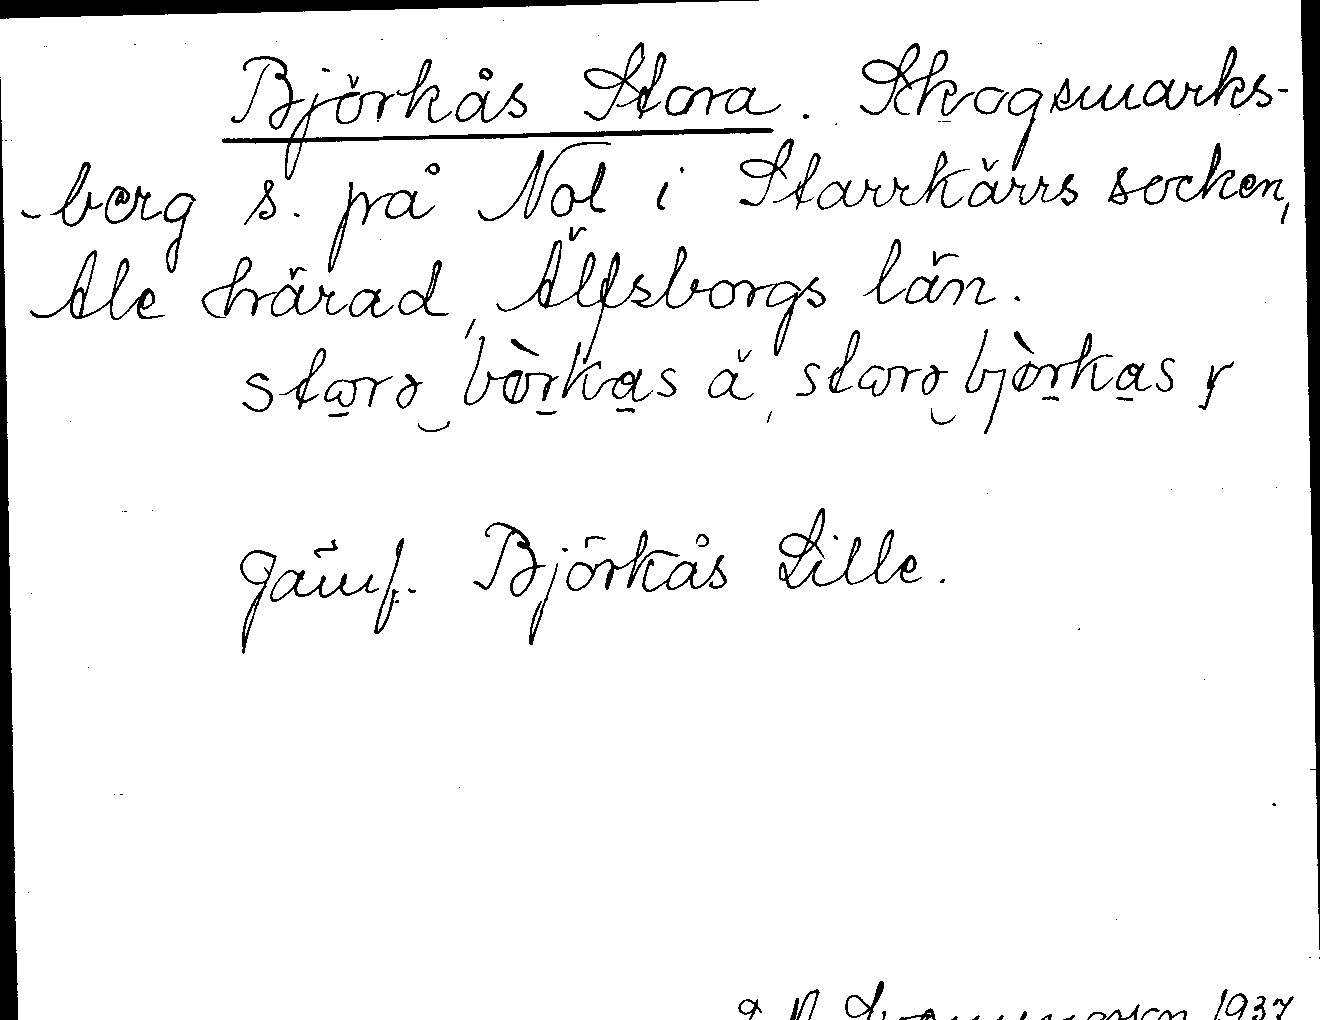 Björkås Stora. Skogsmarks-
-berg s. på Nol i Starrkärrs socken,
Ale härad, Älfsborgs län.
starə bö̀rkas ä, starə bjö̀rkas y
Jämf. Björkås Lille.
1937